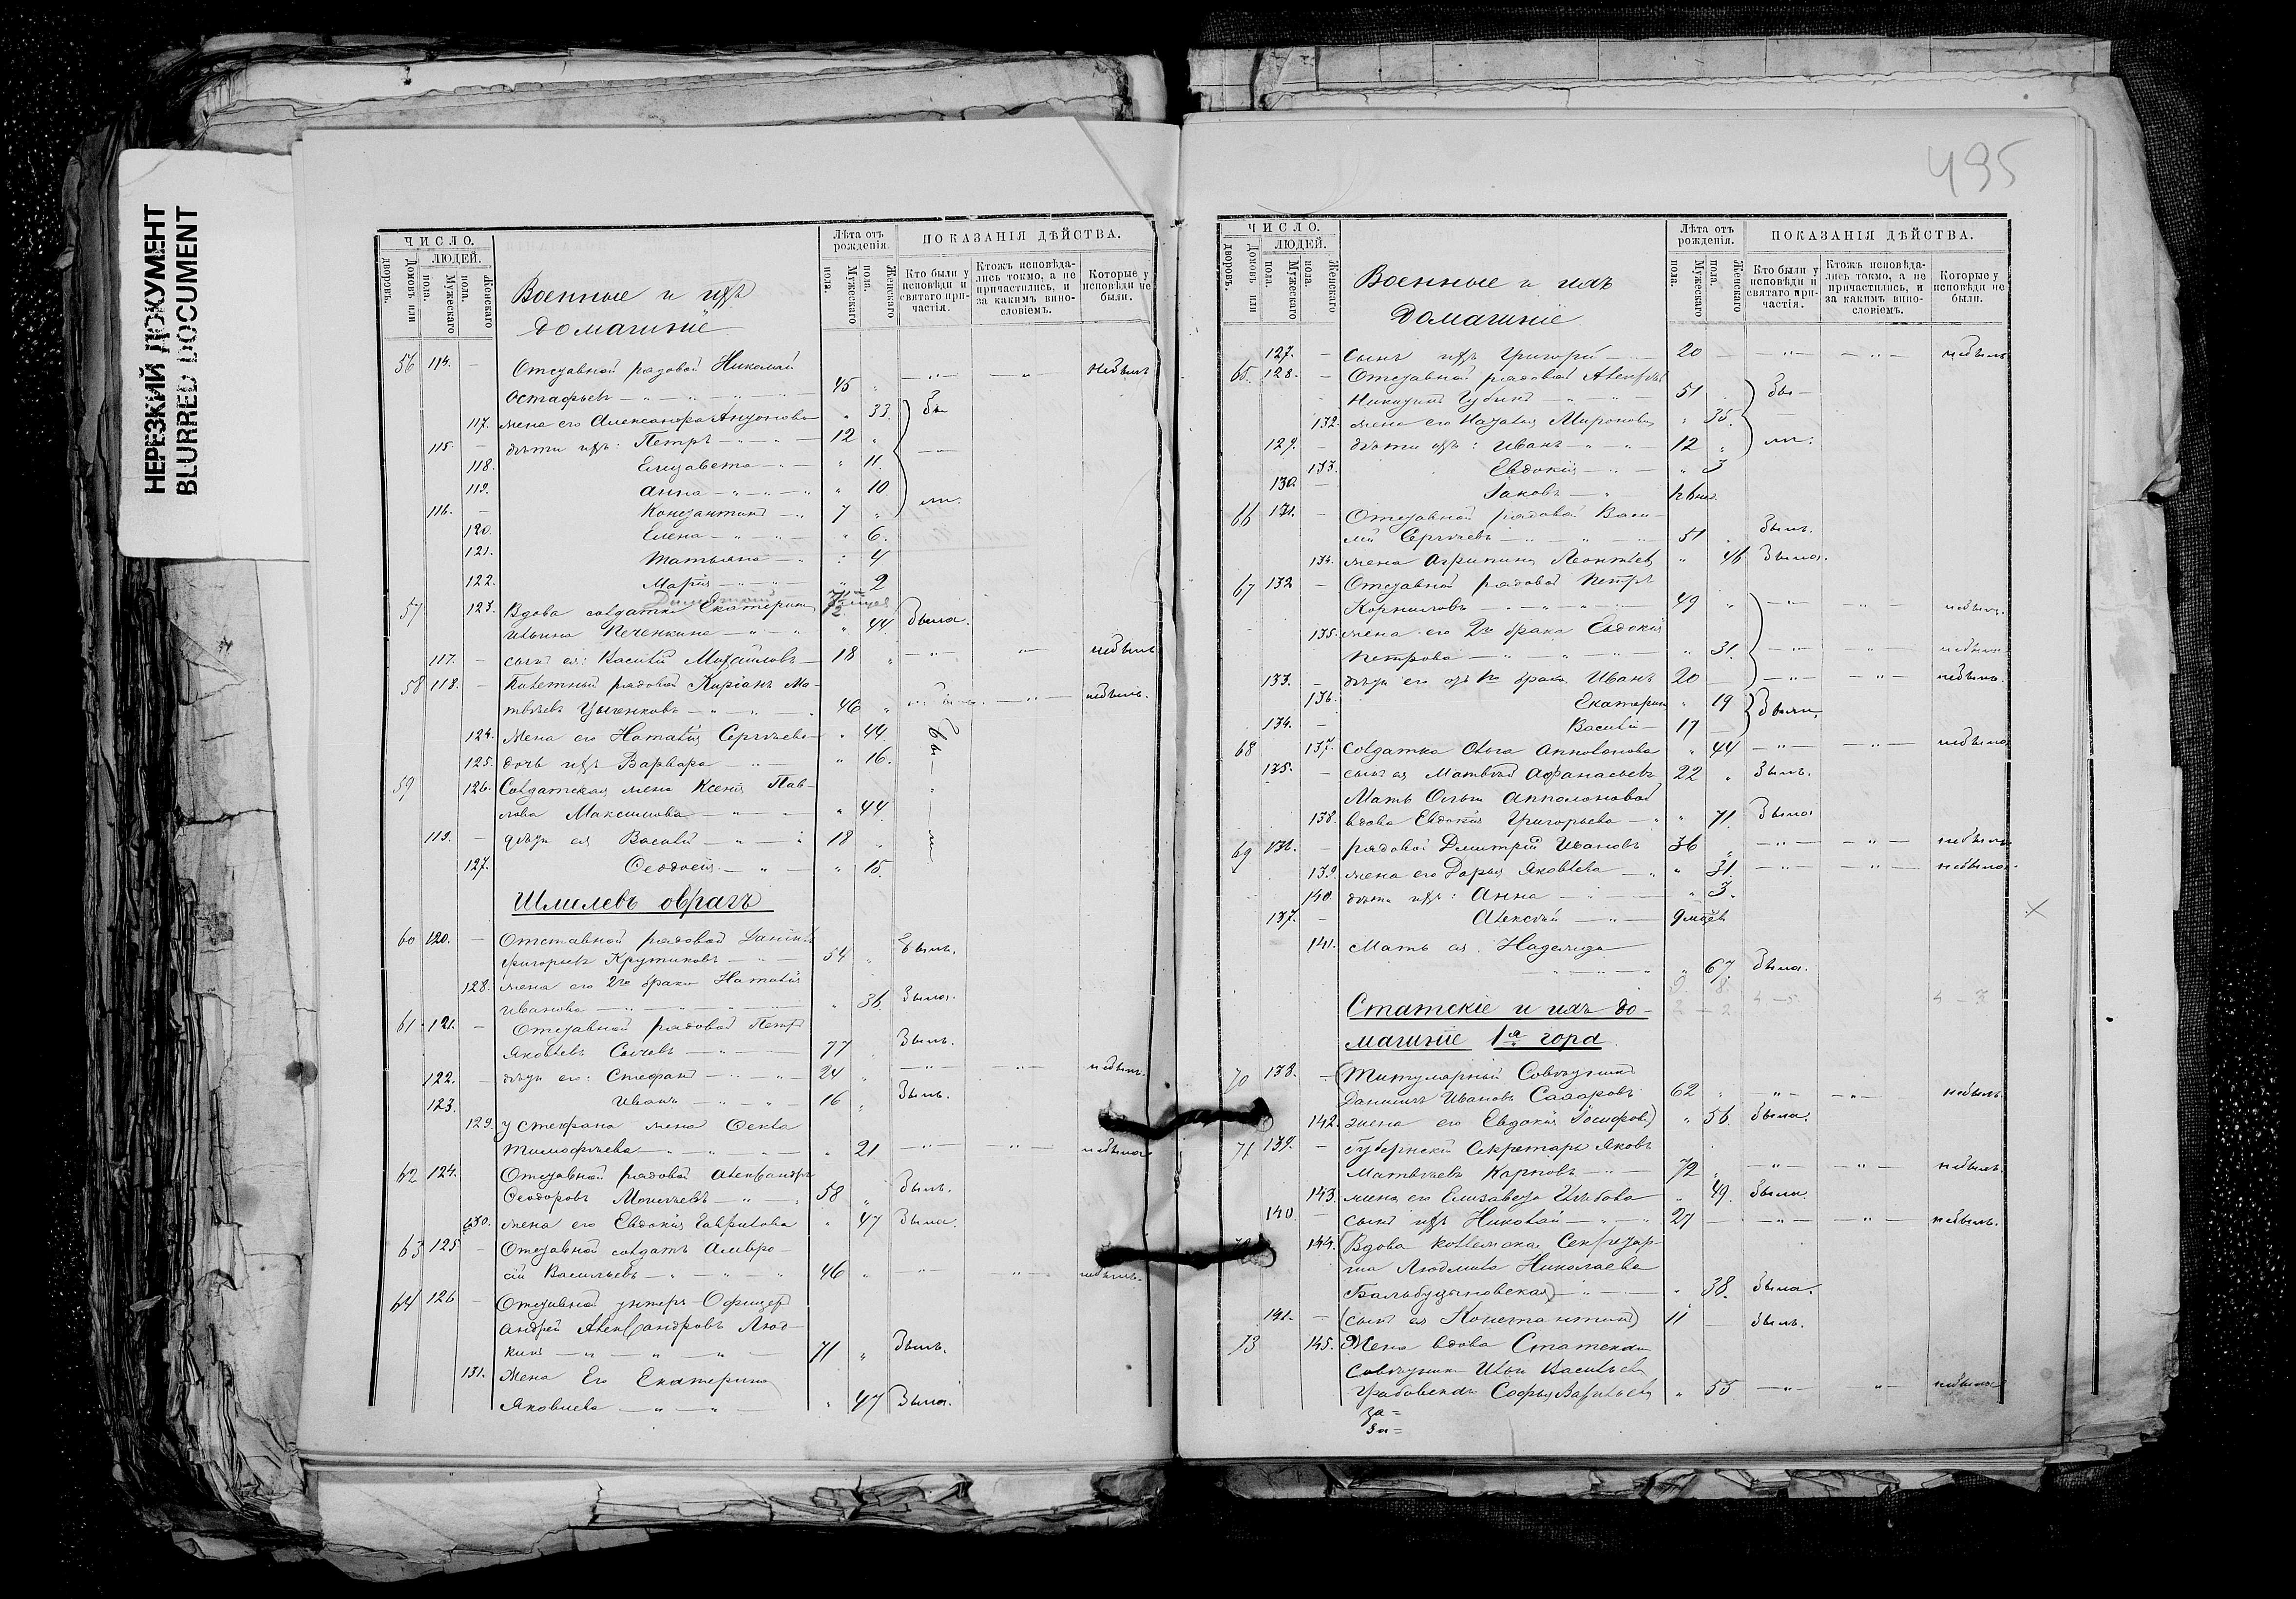 НЕРЕЗКИЙ ДОКУМЕНТ
BLURRED DOCUMENT
ЧИСЛО.
ЛЮДЕЙ.
Домовъ или дворовъ.
Мужескаго пола.
Женскаго пола.
Военные и ихъ
домашніе
Лѣта отъ рожденія.
Мужескаго пола.
Женскаго пола.
ПОКАЗАНІЯ ДѢЙСТВА.
Кто были у исповѣди и святаго причастія.
Ктожъ исповѣдались токмо, а не причастились, и за какимъ винословіемъ.
Которые у исповѣди не были.
56 114. — Отставной рядовой Николай
Остафьевъ 45 " — " — " небылъ
117. жена его Александра Антонова " 33. бы
115. — дѣти ихъ: Петръ 12 "
118. Елизавета " 11.
119. Анна " 10
116. — Константинъ 7 " ли.
120. Елена " 6.
121. Татьяна " 4
122. Марія " 2
57 123. Вдова солдатка Екатерина
Ильина Печенкина " 44. Была.
117. — сынъ ея: Василій Михайловъ 18 " — " — " небылъ
58 118. — Билетный рядовой Киріанъ Ма-
твѣевъ Цыганковъ 46 " небылъ.
124. Жена его Наталія Сергѣева " 44 бы
125. дочь ихъ Варвара " 16.
59 126. Солдатская жена Ксенія Пав-
лова Максимова " 44.
119. — дѣти ея Василій 18 " ли
127. Ѳеодосія " 15.
Шмилевъ оврагъ
60 120. — Отставной рядовой Даніилъ
Григорьевъ Крутиковъ 54 " Былъ.
128. жена его 2го брака Наталія
Иванова " 36. Была.
61 121. — Отставной рядовой Петръ
Яковлевъ Сычевъ 77 " Былъ.
122. — дѣти его: Стефанъ 24 " — " — " небылъ.
123. Иванъ 16 " Былъ.
129. у Стефана жена Ѳекла
Тимофѣева " 21 — " — " небыла
62 124. Отставной рядовой Александръ
Ѳеодоровъ Моисѣевъ 58 " Былъ.
130. жена его Евдокія Гаврилова " 47 Была.
63 125 — Отставной солдатъ Амвро-
сій Васильевъ 46 " — " — " небылъ.
64 126 — Отставной унтеръ-Офицеръ
Андрей Александровъ
кинъ 71 " Былъ.
131. Жена Его Екатерина
Яковлева " 47 Была.
495
ЧИСЛО.
ЛЮДЕЙ.
Домовъ или дворовъ.
Мужескаго пола.
Женскаго пола.
Военные и ихъ
Домашніе
Лѣта отъ рожденія.
Мужескаго пола.
Женскаго пола.
ПОКАЗАНІЯ ДѢЙСТВА.
Кто были у исповѣди и святаго причастія.
Ктожъ исповѣдались токмо, а не причастились, и за какимъ винословіемъ.
Которые у исповѣди не были.
127. — Сынъ ихъ Григорій 20 — " — " — небылъ
65. 128. — Отставной рядовой
Никитинъ Губинъ 51 " бы —
132. жена его Наталія Миронова " 35.
129. — дѣти ихъ: Иванъ 12 " ли.
133. Евдокія " 3
130. — Іаковъ
66 131. — Отставной рядовой Васи-
лій Сергѣевъ 51 " Былъ.
134. жена Агрипина Леонтьева " 46 Была.
67 132 — Отставной рядовой Петръ
Корниловъ 49 " — " — " небылъ.
135. жена его 2го брака Евдокія
Петрова " 31. — " — " небыла
133. — дѣти его отъ 1го брака Иванъ 20 — " — " — небылъ.
136. Екатерина " 19 Были.
134. — Василій 17 —
68 137. Солдатка Ольга Апполонова " 44 — " — " — небыла
135. — сынъ ея Матвѣй Афанасьевъ 22 " Былъ.
Мать Ольги Апполоновой
138. вдова Евдокія Григорьева " 71. Была
69 136. — рядовой Димитрій Ивановъ 36 " — " — " — небылъ
139. жена его Дарья Яковлева " 31. — " — " — небыла.
140. дѣти ихъ: Анна " 3.
137. — Алексѣй 9 мцѣв
141. Мать ея Надежда
" 67. Была.
Статскіе и ихъ до-
машніе 1я гора
70 138. — Титулярный Совѣтникъ
Даніилъ Ивановъ 62 " " — " — небылъ.
142. жена его Евдокія Іосифова) " 56. Была.
71 139. — Губернскій Секретарь Яковъ
Матвѣевъ Карповъ 72 " — " — " небылъ.
143. жена его Елизавета Глѣбова " 49. Была.
140. — сынъ ихъ Николай 27 — " — " — небылъ.
144. (Вдова Коллежская Секретар-
ша Людмила Николаева
" 38. Была.
141. — (сынъ ея Константинъ) 11 — Былъ.
73 145. Жена вдова Статскаго
Совѣтника Ильи Васильева
Софья " 55 — " — " небыла
за=
за=